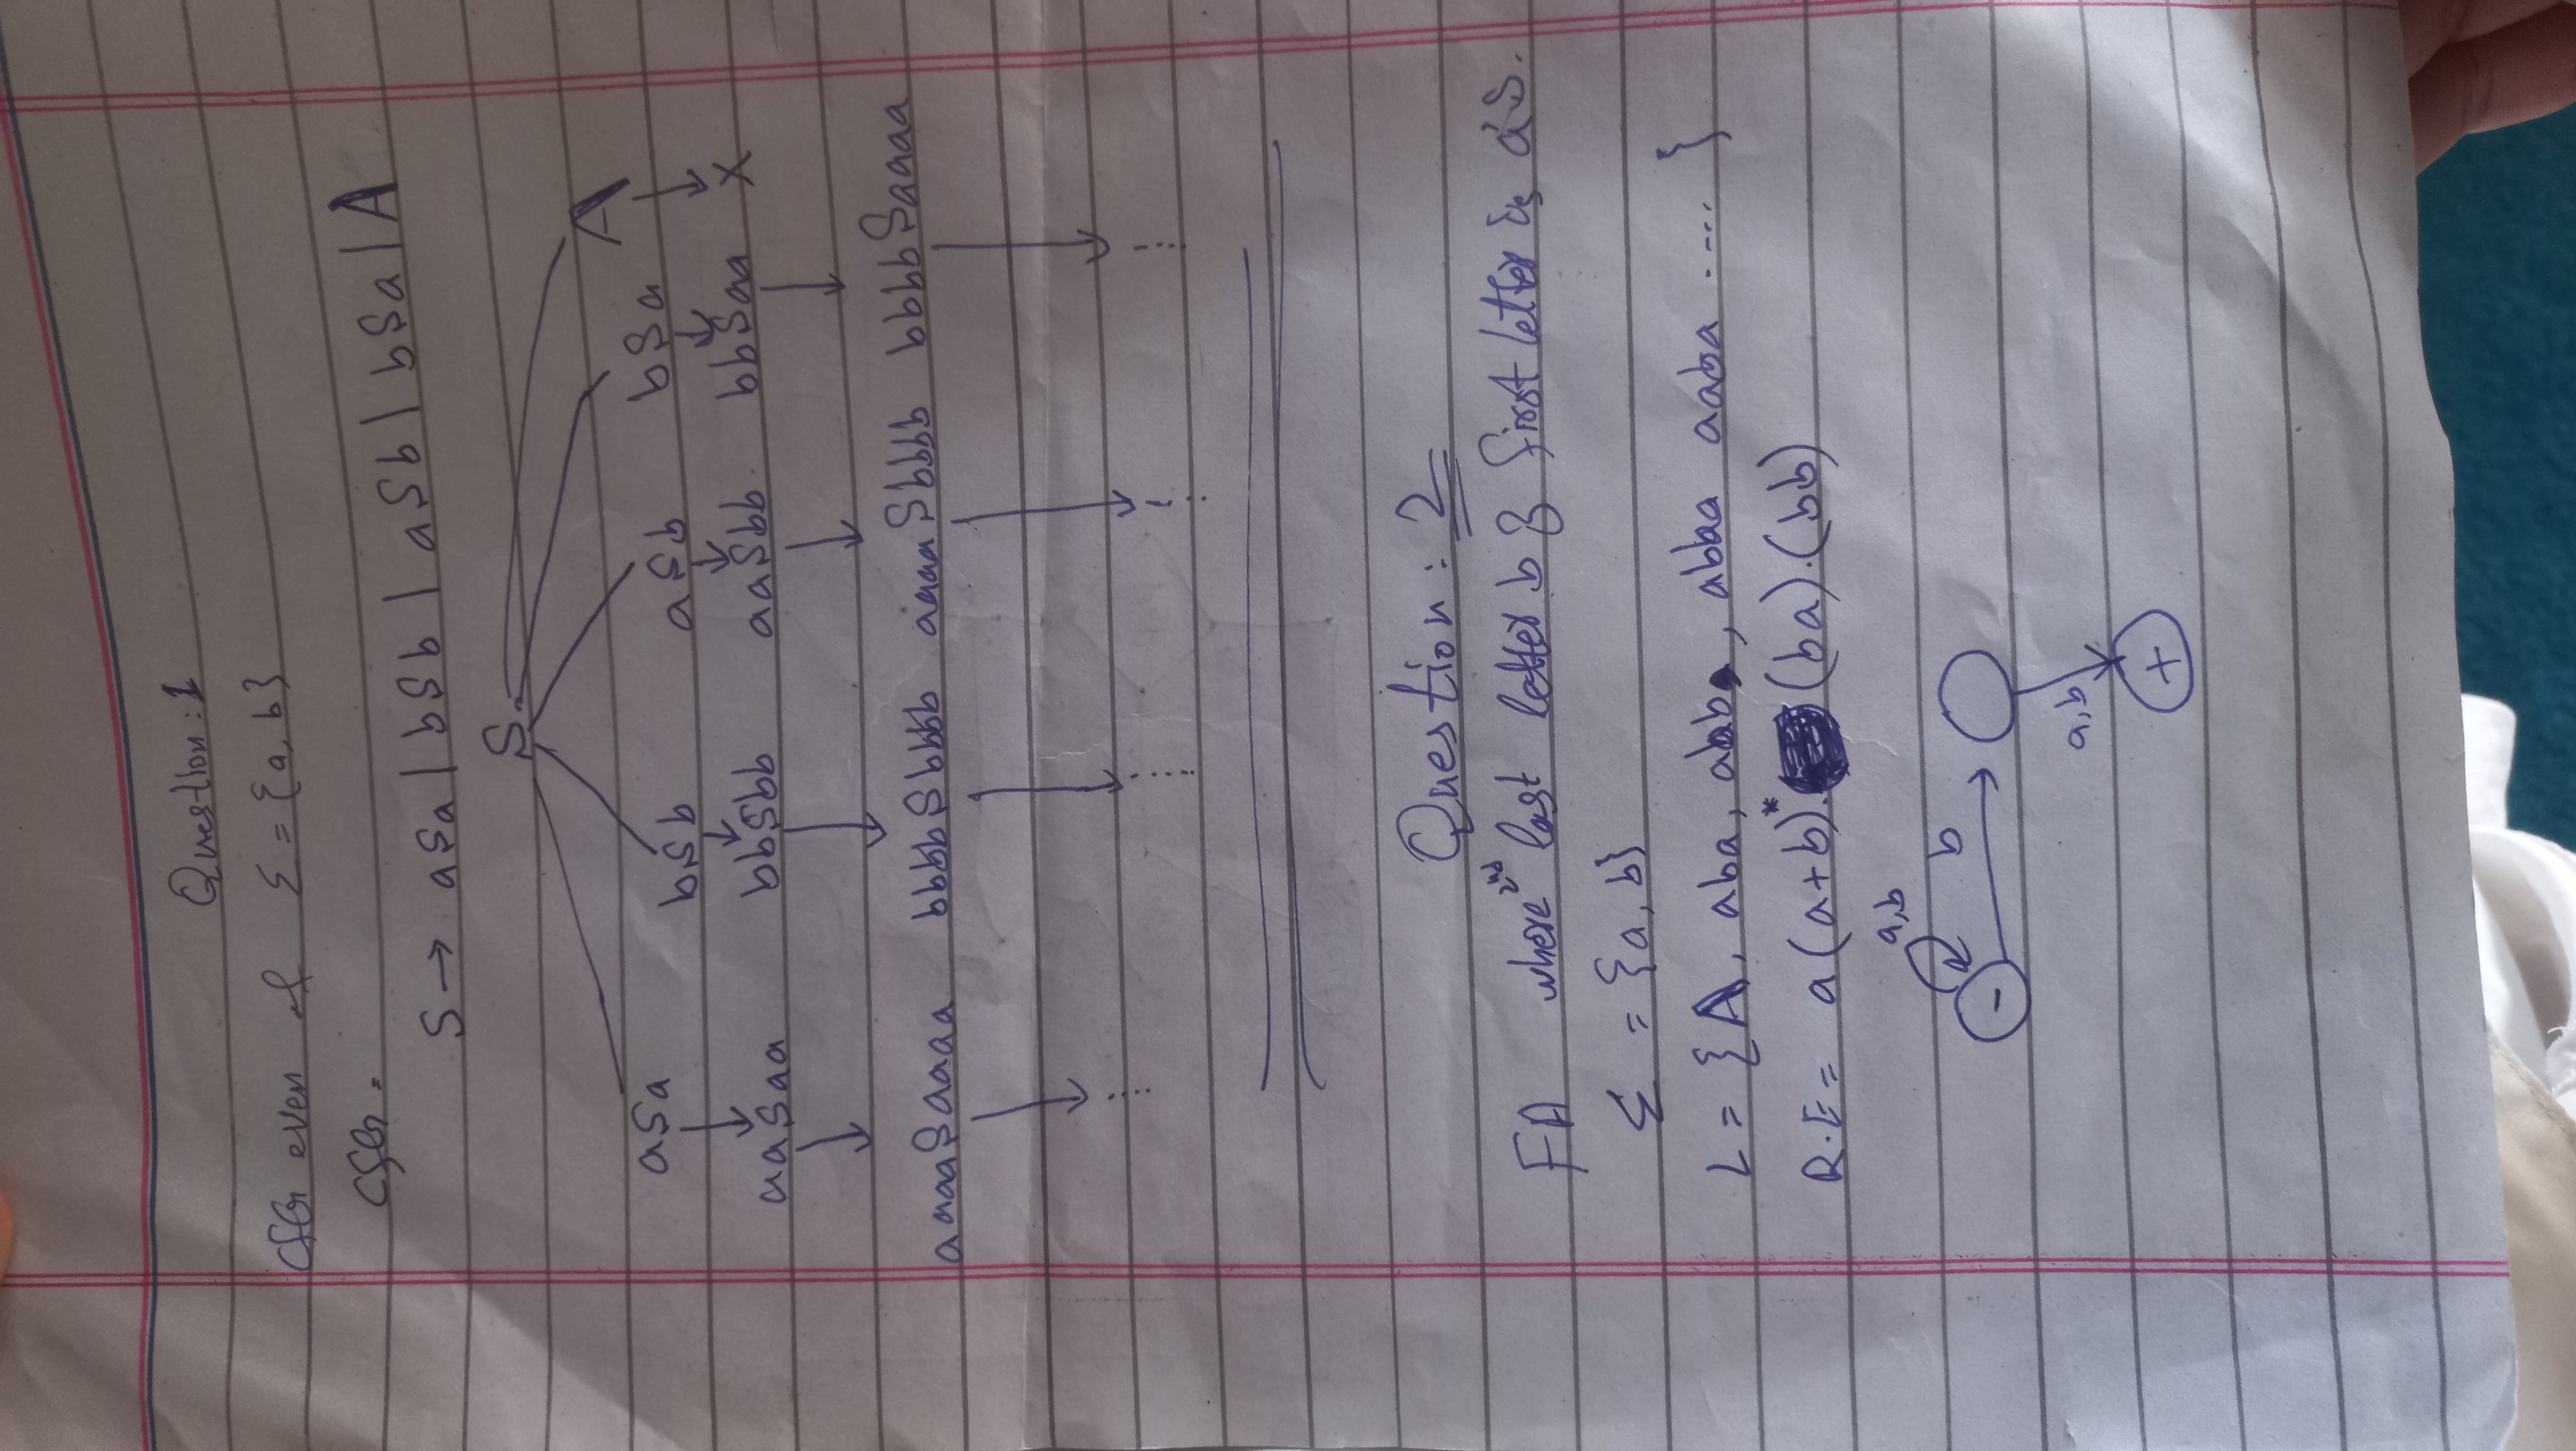 Question: 1
CFG even of Σ = {a, b}
CFG.
S → aSa | bSb | aSb | bSa | Λ
S
aSa bSb aSb bSa Λ
aaSaa bbSbb aaSbb bbSaa X
aaaaSaaaa bbbbSbbbb aaaaSbbbb bbbbSaaaa
Question: 2
FA where 2nd last letter b & first letter is a's.
Σ = {a, b}
L = {Λ, aba, , aaba .... }
R.E = a(a+b)*. (ba).(bb)
a,b
- b
a,b
+